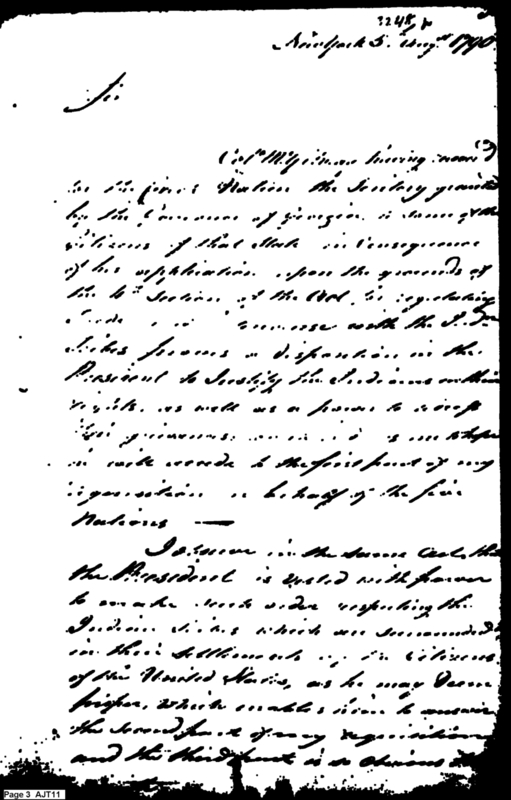 Newyork 5. Augt 1790
Sir
Colo McGilvray having
the Nation the granted
by the Governor of Georgia to some of the
Citizens of that State in Consequence
of his application upon the grounds of
the 4th Section of the Act, for regulating
Trade and intercourse with the Indian
tribes proves a disposition in the
President to Justify the Indians in their
rights, as well as a power to
their grievances
will accede to the first part of my
requisition in behalf of the five
Nations —
I observe in the same Act, that
the President is vested with power
to make such order respecting the
Indian tribes which are surrounded
in their Settlements by the Citizens
of the United States, as he may deem
proper, which enables him to answer
the second part of my requisition
and the third part is so obvious
Page 3 AJT11